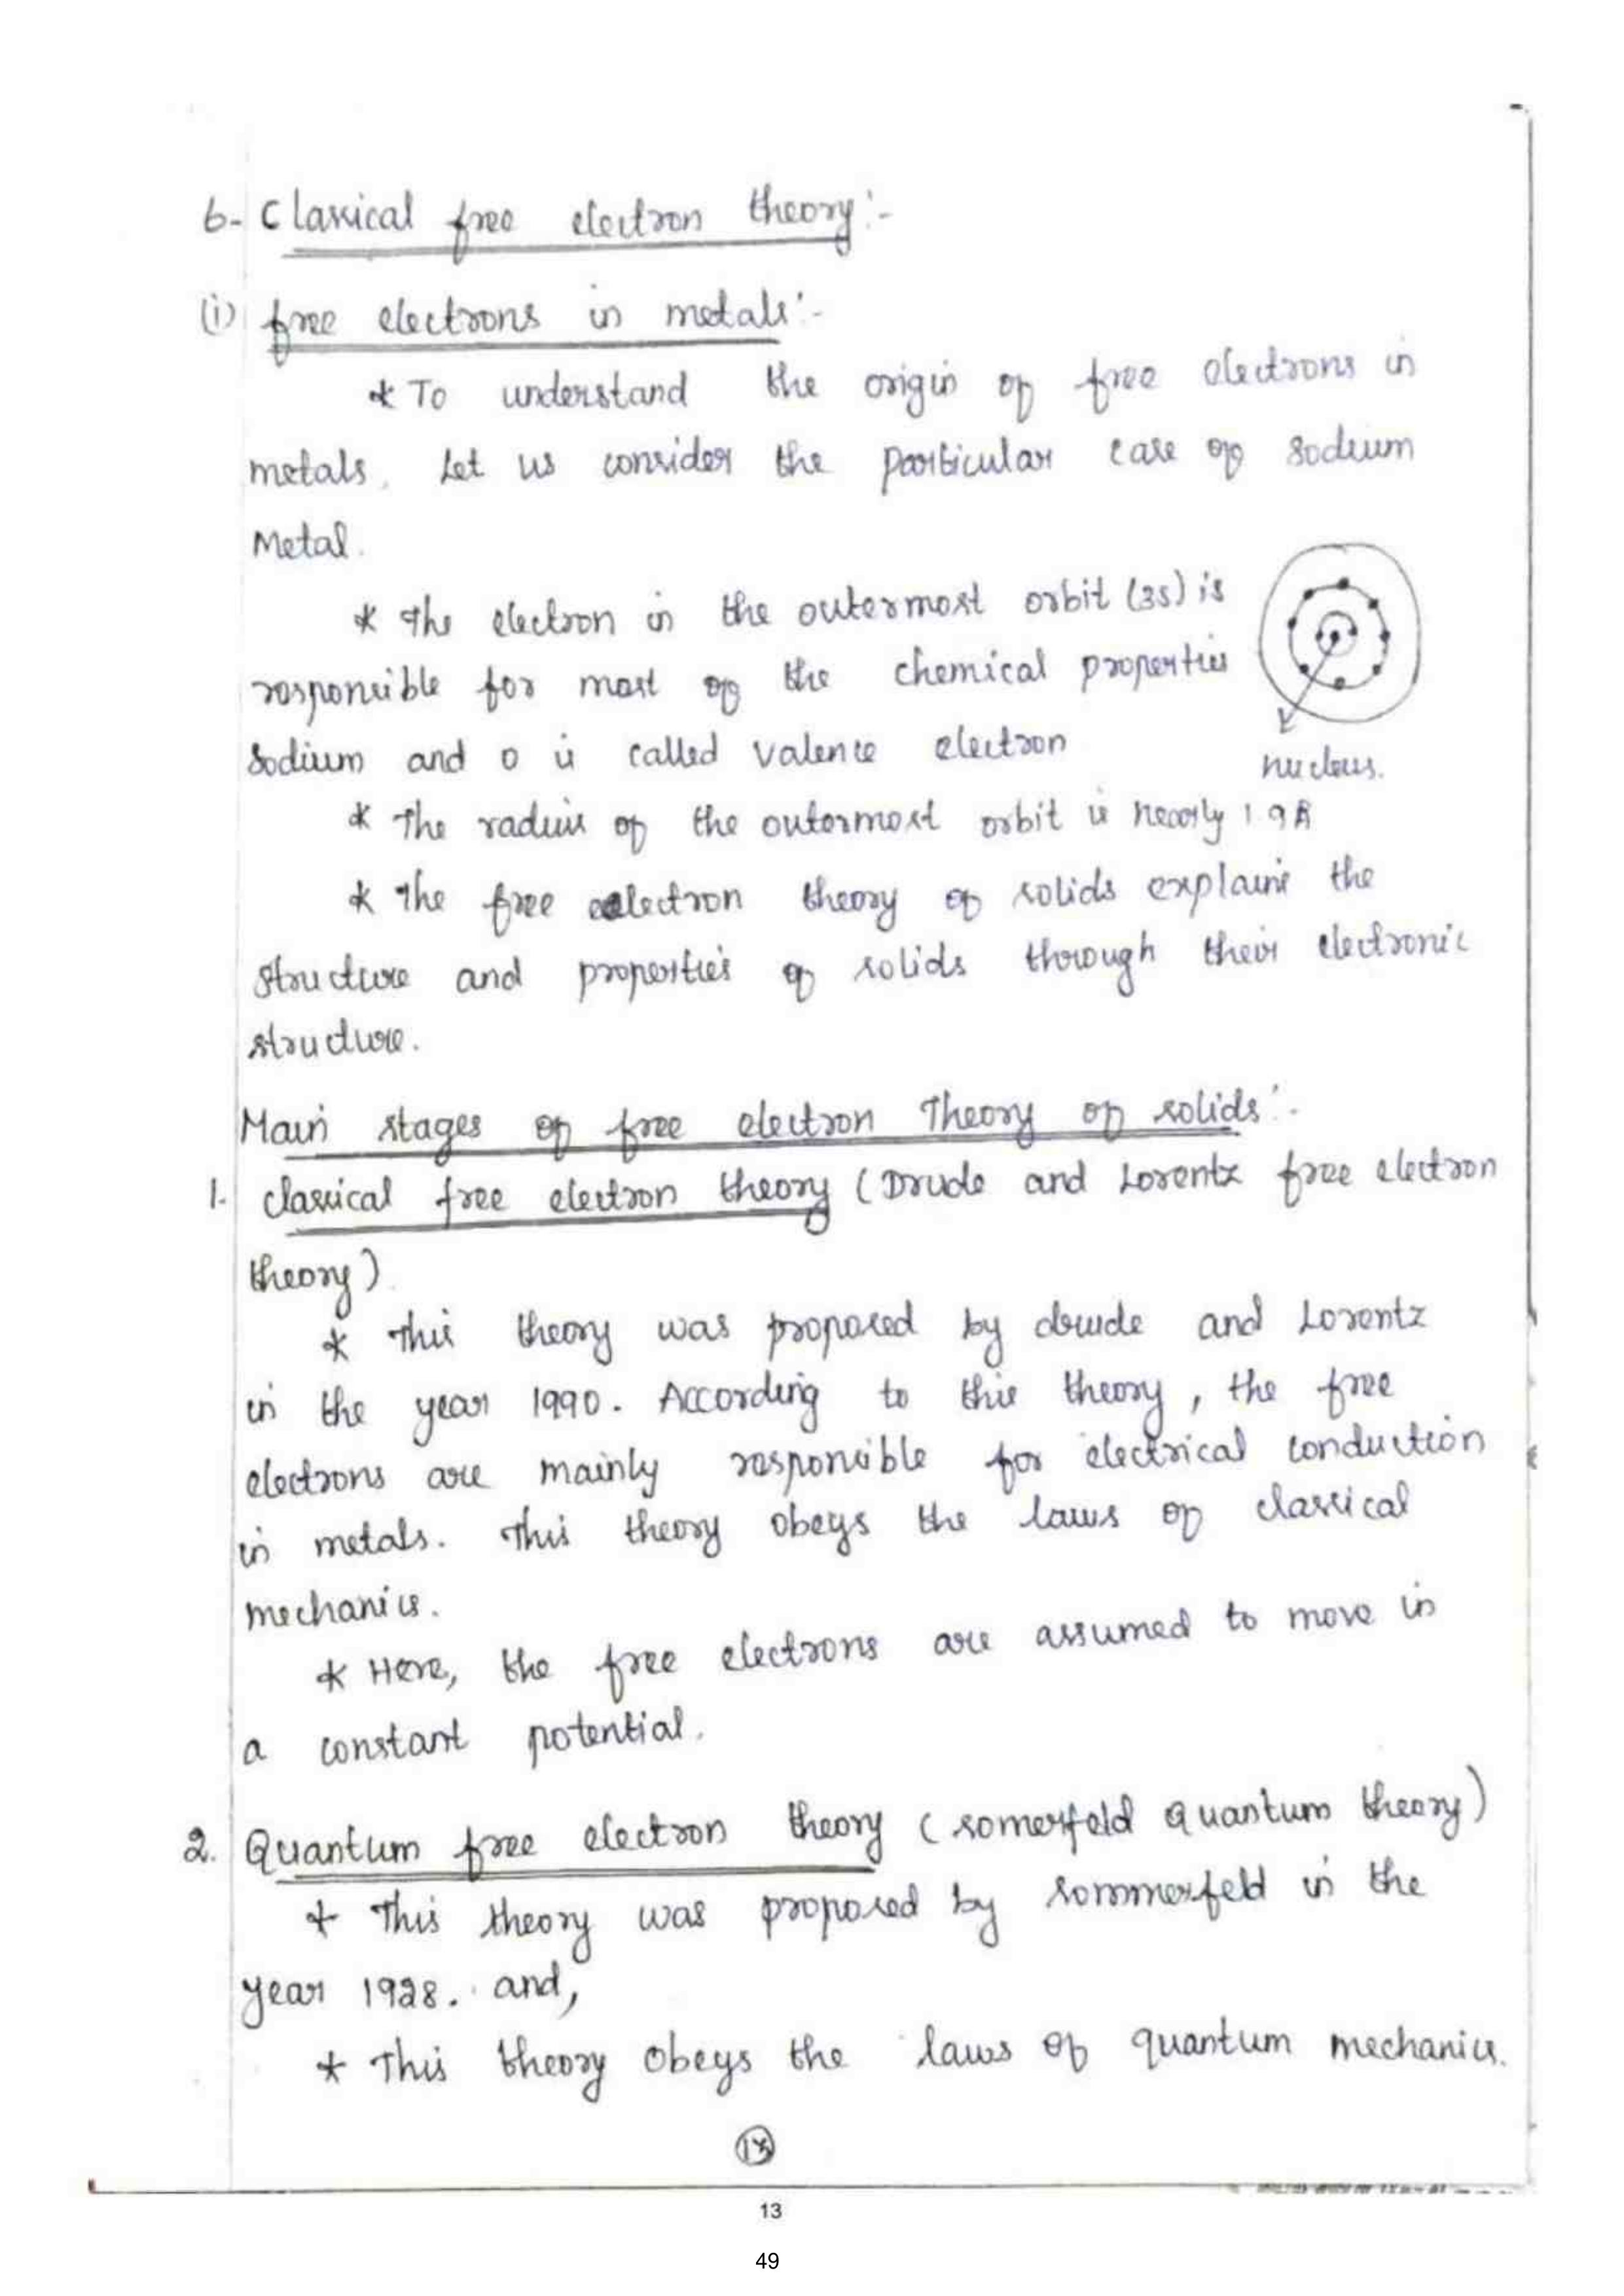 6- Classical free electron theory:-
(i) free electrons in metals:-
* To understand the origin of free electrons in
metals. Let us consider the particular case of sodium
Metal.
* The electron in the outermost orbit (3s) is
responsible for most of the chemical properties
sodium and o is called valence electron
nucleus.
* The radius of the outermost orbit is nearly 1.9Å
* The free electron theory of solids explains the
structure and properties of solids through their electronic
structure.
Main stages of free electron Theory of solids:-
1. classical free electron theory (Drude and Lorentz free electron
theory)
* This theory was proposed by drude and Lorentz
in the year 1990. According to this theory, the free
electrons are mainly responsible for electrical conduction
in metals. This theory obeys the laws of classical
mechanics.
* Here, the free electrons are assumed to move in
a constant potential.
2. Quantum free electron theory (somerfeld Quantum theory)
* This theory was proposed by sommerfeld in the
year 1928. and,
* This theory obeys the laws of quantum mechanics.
13
49